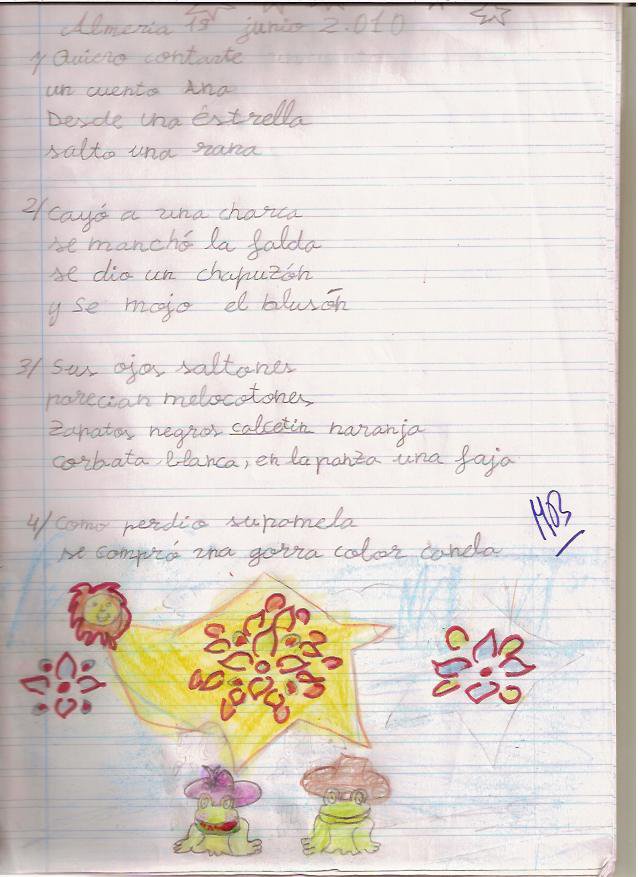 Almería 13 junio 2.010
1/ Quiero contarte
un cuento Ana
Desde una éstrella
salto una rana
2/ Cayó a una charca
se manchó la falda
se dio un chapuzón
y se mojo el blusón
3/ Sus ojos saltones
parecian melocotones
Zapatos negros calcetin naranja
corbata blanca, en la panza una faja
4/ Como perdio su pamela
se compró una gorra color canela